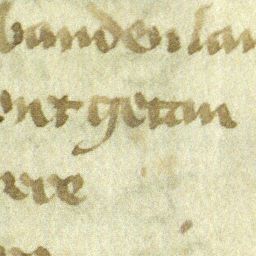 banden lan
ent getan
rre